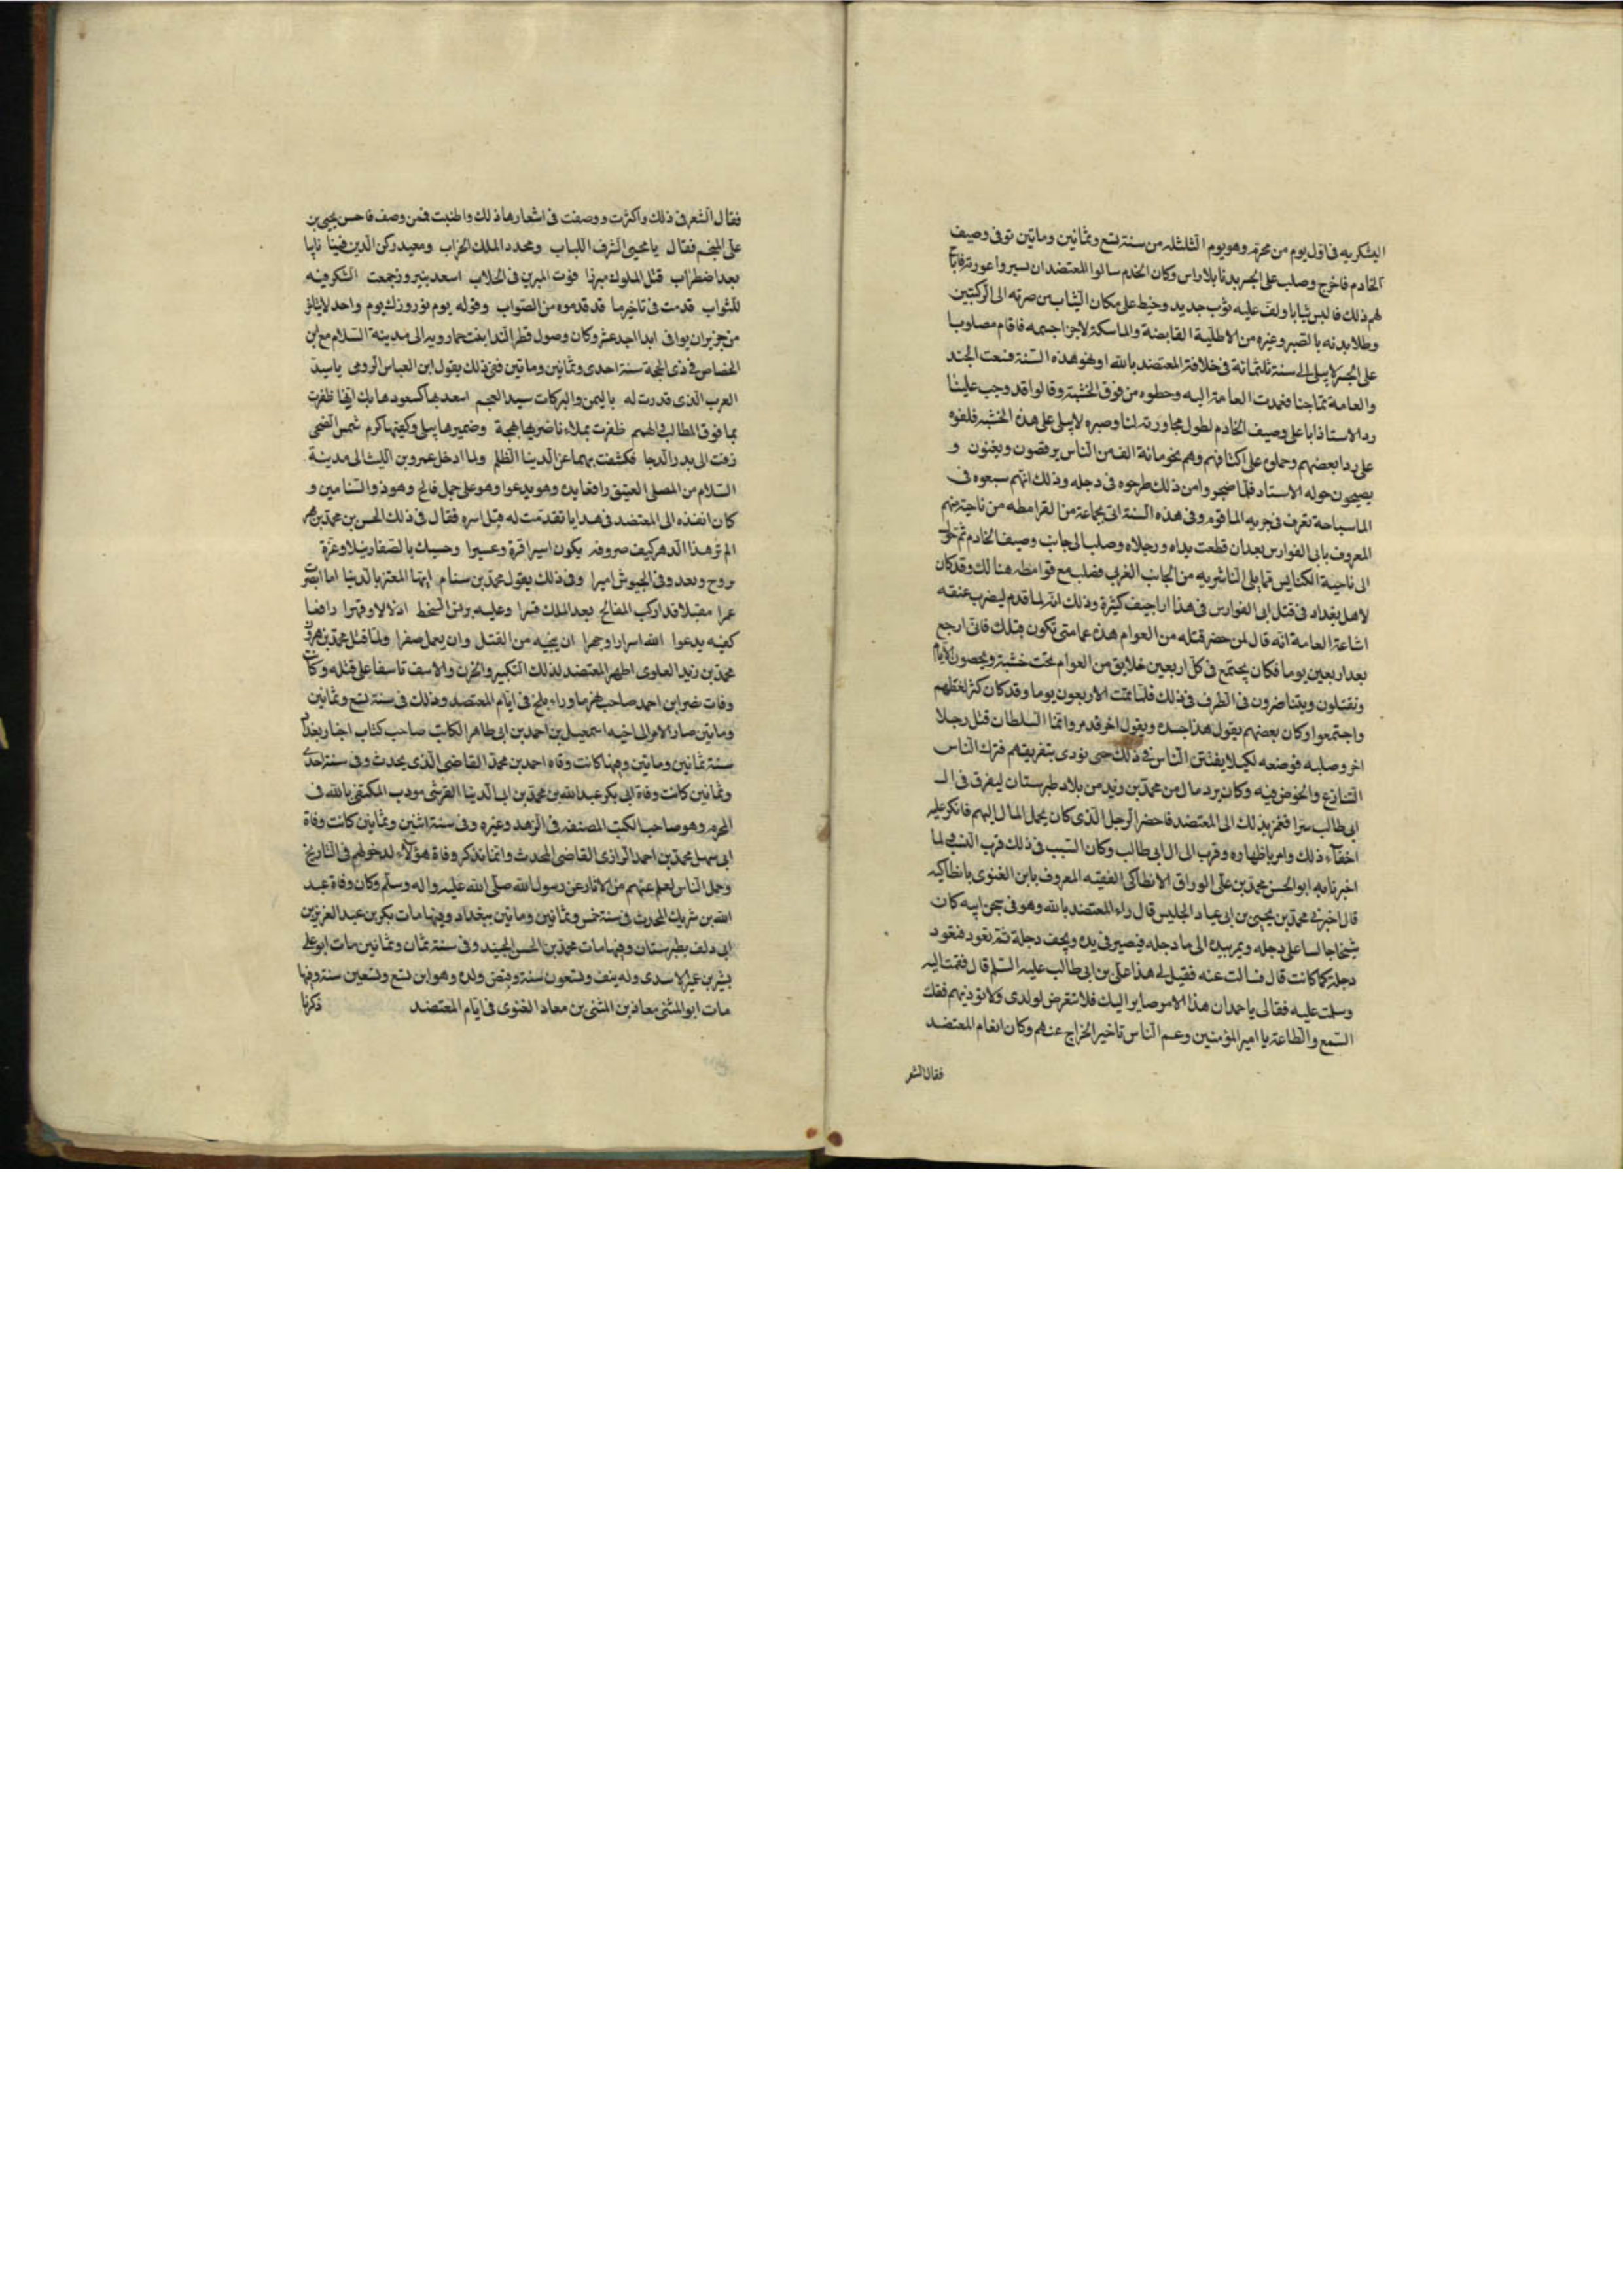 اليشكريه فى اول يوم من محرم وهو يوم الثلثله من سنة تسع وثمانين وماتين توفى وصيف
الخادم فاخرج وصلب على الجسر بدنا بلا راس وكان الخدم سالوا المعتضد ان يسيروا عورته فاباح
لهم ذلك فالبس ثيابا ولف عليه ثوب جديد وخيط على مكان الثياب من صرته الى الركبتين
وطلا بدنه بالصبر وغيره من الاطلية القابضة والماسكة لاجزا جسمه فاقام مصلوبا
على الجسر لا يبلى الى سنة ثلثمائة فى خلافة المعتضد بالله او نحو هذه السنة فنعت الجند
والعامة تماجنا فعدت العامة اليه وحطوه من فوق الخشبة وقالوا قد وجب علينا
رد الاستاذ ابا على وصيف الخادم لطول مجاورته لنا وصبره لا يبلى على هذه الخشبة فلفوه
على ردا بعضهم وحملوه على اكتافهم وهم نحو مائة الف من الناس يرقصون ويغنون و
يصيحون حوله الاستاد فلما ضجروا من ذلك طرحوه فى دجله وذلك انهم سبعوه فى
الما سباحة تعرف فى جريه الما قوم وفى هذه السنة اتى بجماعة من القرامطه من ناحية منهم
المعروف بابى الفوارس بعد ان قطعت يداه ورجلاه وصلب الى جانب وصيف الخادم ثم حول
الى ناحية الكنايس مما يلى الناشريه من الجانب الغربى فصلب مع قوامطه هنالك وقد كان
لاهل بغداد فى قتل ابى الفوارس فى هذا اراجيف كثيرة وذلك انه لما قدم ليضرب عنقه
اشاعة العامة انه قال لمن حضر قتله من العوام هذه عمامتى تكون قبلك فانى ارجع
بعد اربعين يوما فكان يجتمع فى كل اربعين خلايق من العوام تحت خشبة ويحصون الايام
ونقتلون ويتناضرون فى الطرف فى ذلك فلما تمت الاربعون يوما وقد كان كثر لغظهم
واجتمعوا وكان بعضهم يقول هذا جسده ويقول اخر قد مر وانما السلطان قتل رجلا
اخر وصلبه فوضعه لكيلا يفتتن الناس فى ذلك حتى نودى بتفريقهم فترك الناس
التنازع والخوض فيه وكان يرد مال من محمد بن زيد من بلاد طبرستان ليفرق فى ال
ابى طالب سرا فغمز بذلك الى المعتضد فاحضر الرجل الذى كان يحمل المال اليهم فانكر عليه
اخفاء ذلك وامر باظهاره وقرب الى ال ابى طالب وكان السبب فى ذلك قرب النسب لما
اخبرنا به ابو الحسن محمد بن على الوراق الانطاكى الفقيه المعروف بابن الغنوى بانطاكيه
قال اخبرنى محمد بن يحيى بن ابى عباد الجليس قال راء المعتضد بالله وهو فى سجن ابيه كان
شيخا جالسا على دجله ويمر بيده الى ما دجله فيصير فى يده ويجف دجلة ثم تعود فتعود
دجلة كما كانت قال فسالت عنه فقيل لى هذا على بن ابى طالب عليه السلم قال فقمت اليه
وسلمت عليه فقال لى يا احمد ان هذا الامر صاير اليك فلا تتعرض لولدى ولا تؤذيهم فقلت
السمع والطاعة يا امير المؤمنين وعم الناس تاخير الخراج عنهم وكان انعام المعتضد
فقال الشعر
فقال الشعر فى ذلك واكثرت ووصفت فى اشعارها ذلك واطنبت فمن وصف فاحسن يحيى بن
على المنجم فقال يا محيى الشرف اللباب ومجدد الملك الخراب ومعيد ركن الدين فينا ثابا
بعد اضطراب قتل الملوك مبرزا فوت المبرى فى الحلاب اسعد بنيروز جمعت الشكر فيه
للثواب قدمت فى تاخيرما قد قدموه من الصواب وقوله يوم نوروزك يوم واحد لا يتاخر
من حزيران يوافى ابدا احد عشر وكان وصول قطر الندا بنت خمارويه الى مدينة السلام مع ابن
الخصاص فى ذى الحجة سنة احدى وثمانين وماتين ففى ذلك يقول ابن العباس الرومى ياسيد
العرب الذى قدرت له باليمن والبركات سيد العجم اسعد بها كسعودها بك انها ظفرت
بما فوق المطالب والهمم ظفرت بملاء ناضريها بهجة وضميرها يبلى وكفيها كرم شمس الضحى
زفت الى بدر الدجا فكشفت بهما عن الدنيا الظلم ولما ادخل عمرو بن الليث الى مدينة
السلام من المصلى العتيق رافعا يده وهو يدعوا وهو على جمل فالج وهو ذو السنامين و
كان انفذه الى المعتضد فى هدايا تقدمت له قبل اسره فقال فى ذلك الحسن بن محمد بن فهر
الم تر هذا الدهر كيف صروفه يكون اسيرا قرة وعسيرا وحسبك بالصفار نبلا وعزة
يروح ويعدو فى الجيوش اميرا وفى ذلك يقول محمد بن بسام ايها المعتز بالدنيا اما ابصرت
عمرا مقبلا قد اركب الفالج بعد الملك قسرا وعليه برنس السخط اذلالا وقهرا رافعا
كفيه يدعوا الله اسرارا وجهرا ان ينجيه من القتل وان يعمل صفرا ولما قتل محمد بن هرون
محمد بن زيد العلوى اظهر المعتضد لذلك النكير والحزن والاسف تاسفا على قتله وكان
وفات نصر ابن احمد صاحب نهر ما وراء بلخ فى ايام المعتضد وذلك فى سنة تسع وثمانين
وماتين صار الامر الى اخيه اسمعيل بن احمد بن ابى طاهر الكاتب صاحب كتاب اخبار بغداد
سنة ثمانين وماتين وفيها كانت وفاه احمد بن محمد القاضى الذى يحدث وفى سنة احدى
وثمانين كانت وفاة ابى بكر عبد الله بن محمد بن ابى الدنيا القرشى مودب المكتفى بالله فى
المحرم وهو صاحب الكتب المصنفه فى الزهد وغيره وفى سنة اثنين وثمانين كانت وفاة
ابى سهل محمد بن احمد الرازى القاضى المحدث وانما نذكر وفاة هؤلاء لدخولهم فى التاريخ
وحمل الناس العلم عنهم من الاثار عن رسول الله صلى الله عليه واله وسلم وكان وفاة عبد
الله بن شريك المحدث فى سنة خمس وثمانين وماتين ببغداد وفيها مات بكر بن عبد العزيز بن
ابى دلف بطبرستان وفيها مات محمد بن الحسن الجنيد وفى سنة ثمان وثمانين مات ابو على
بشر بن عمير الاسدى وله ينف وتسعون سنة وقبض ولده وهو ابن تسع وتسعين سنة وفيها
مات ابو المثنى معاذ بن المثنى بن معاد العنوى فى ايام المعتضد ذكرنا